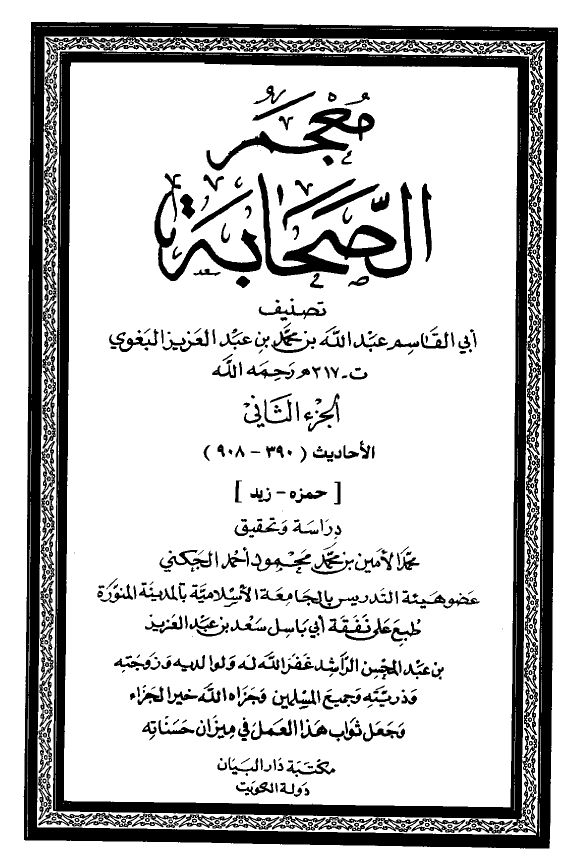 معجم
الصحابة
تصنيف
أبي القاسم عبد الله بن محمد بن عبد العزيز البغوي
ت ـ ٣١٧ هـ رحمه الله
الجزء الثاني
الأحاديث ( ٣٩٠ - ٩٠٨ )
[ حمزه - زيد ]
دراسة وتحقيق
محمد الأمين بن محمد محمود أحمد الجكني
عضو هيئة التدريس بالجامعة الأسلامية بالمدينة المنورة
طبع على نفقة أبي باسل سعد بن عبد العزيز
بن عبد المحسن الراشد غفر الله له ولوالديه وزوجته
وذريته وجميع المسلمين وجزاه الله خير الجزاء
وجعل ثواب هذا العمل في ميزان حسناته
مكتبة دار البيان
دولة الكويت